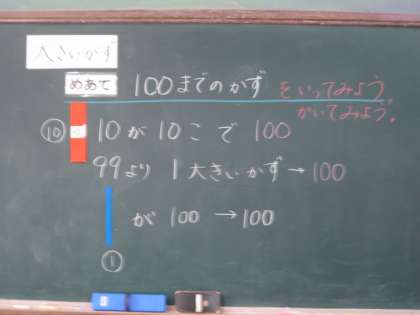 大きいかず
めあて 100までのかず をいってみよう
かいてみよう。
⑩ 10が10こで 100
99より 1大きいかず→100
が 100 →100
①